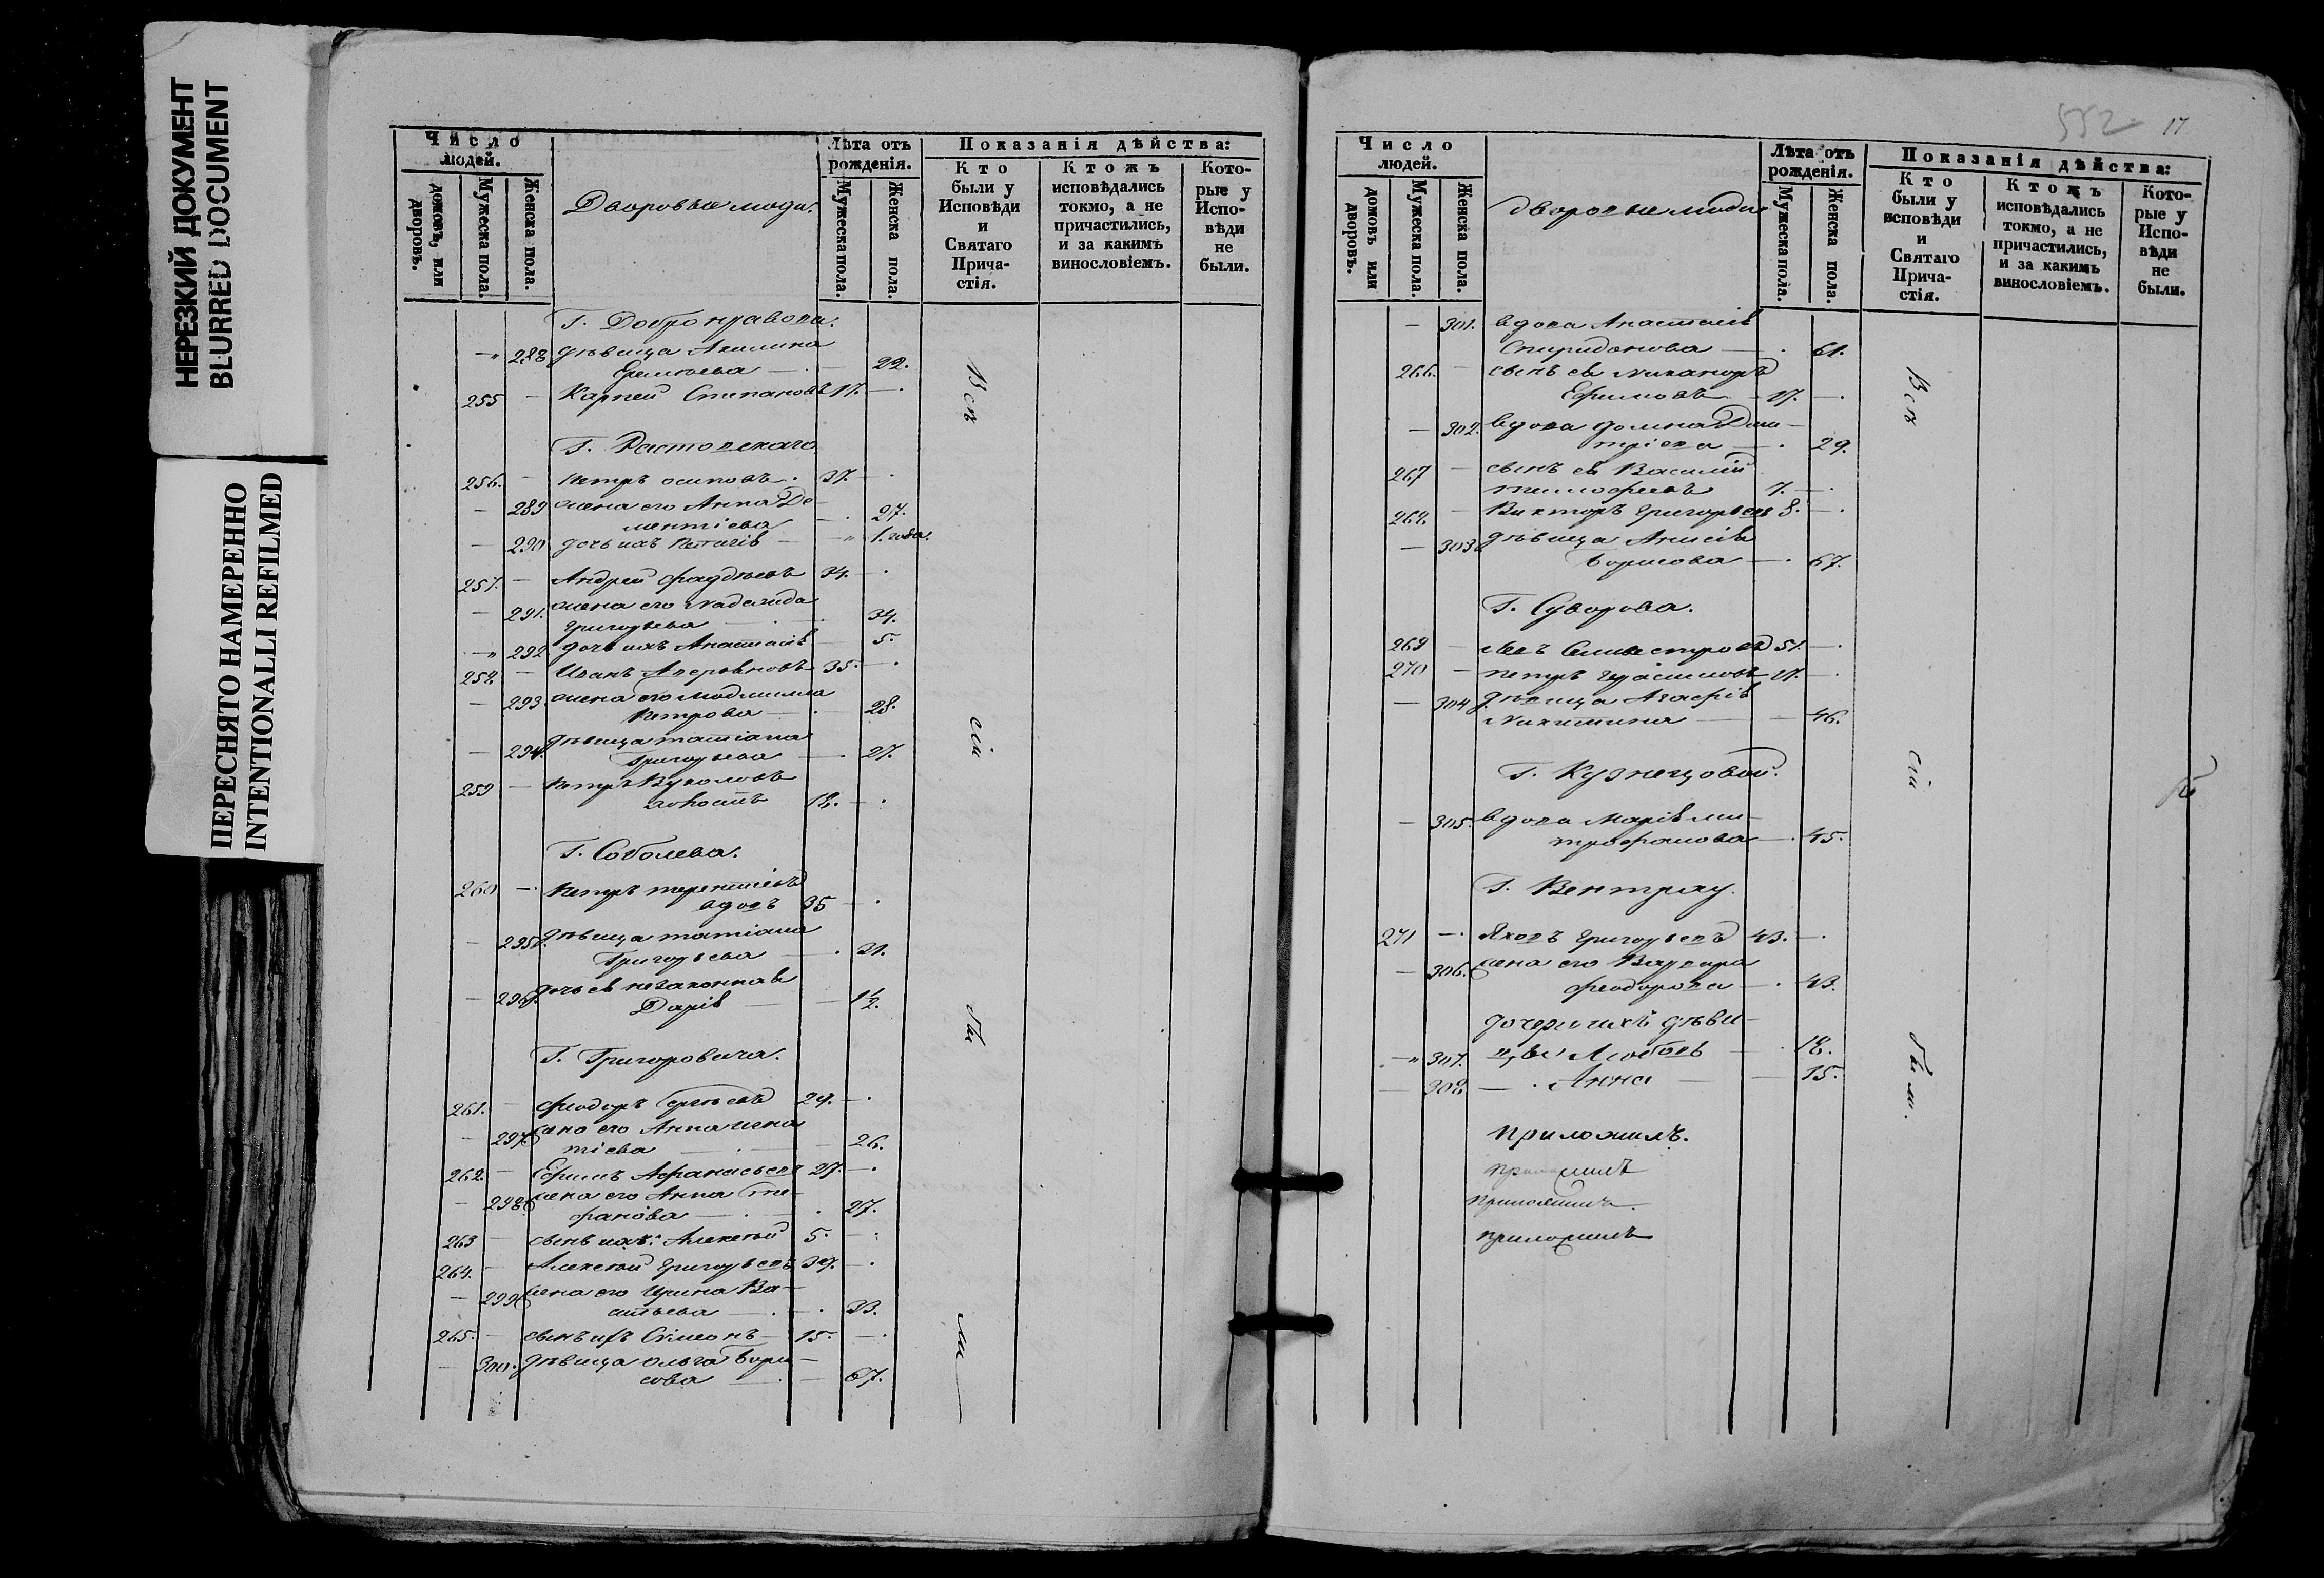 НЕРЕЗКИЙ ДОКУМЕНТ
BLURRED DOCUMENT
ПЕРЕСНЯТО НАМЕРЕННО
INTENTIONALLI REFILMED
Число людей.
домовъ, или дворовъ.
Мужеска пола.
Женска пола.
Дворовые люди.
Лѣта отъ рожденія.
Мужеска пола.
Женска пола.
Показанія дѣйства:
Кто были у Исповѣди и Святаго Прича-стія.
Ктожъ исповѣдались токмо, а не причастились, и за какимъ винословіемъ.
Кото-рые у Испо-вѣди не были.
Г. Добронравова.
288 дѣвица Акилина
Ермолаева 22.
255 Карпей Степановъ 17.
Г. Растовскаго
256. Петръ Осиповъ. 37.
289 жена его Анна Де-
ментіева 27.
290 дочь ихъ 1. года.
257. Андрей Фаддѣевъ 34.
291. жена его Надежда
Григорьева 34.
292 дочь ихъ Анастасія 5.
258. Иванъ 35.
293 жена его Людмилла
Петрова 28.
294. дѣвица Татіана
Григорьева 27.
259 Петръ Вуколовъ
холостъ 18.
Г. Соболева.
260 Петръ Терентіевъ
вдовъ 35
295 дѣвица Татіана
Григорьева 31.
296. дочь ея незаконная
Дарія 1½.
Г. Григоровича.
261. Феодоръ Сергѣевъ 29.
297 жена его Анна Игна-
тіева 26.
262. Ефимъ Афанасьевъ 27.
298. жена его Анна Сте-
фанова 27.
263 сынъ ихъ Алексѣй 5.
264. Алексѣй Григорьевъ 37.
299 жена его Ирина Ва-
сильева 33.
265. сынъ ихъ Симеонъ 15.
300. дѣвица Ольга Бори-
сова 67.
Всѣ
сіи
бы
ли
552 17
Число людей.
домовъ или дворовъ.
Мужеска пола.
Женска пола.
Дворовые люди
Лѣта отъ рожденія.
Мужеска пола.
Женска пола.
Показанія дѣйства:
Кто были у исповѣди и Святаго Прича-стія.
Ктожъ исповѣдались токмо, а не причастились, и за какимъ винословіемъ.
Кото-рые у Испо-вѣди не были.
301. вдова Анастасія
Спиридонова 61.
266. сынъ ея Никаноръ
Ефимовъ 17.
302. вдова Домна Дми-
тріева 29.
267 сынъ ея Василій
Тимофеевъ 7.
268. Викторъ Григорьевъ 8.
303. дѣвица Анисія
Борисова 67.
Г. Суворова.
269 Левъ Селивестровъ 51.
270 Петръ Герасимовъ 21.
304 дѣвица Агафія
Никитина 46.
Г. Кузнецовой.
305. вдова Марія Ми-
трофанова 45.
Г. Вентрау.
271 Яковъ Григорьевъ 43.
306. жена его Варвара
Феодорова 43.
дочери ихъ дѣви-
307. цы Любовь 18.
308. Анна 15.
приложилъ.
приложилъ
приложилъ.
приложилъ
Всѣ
сіи
были.